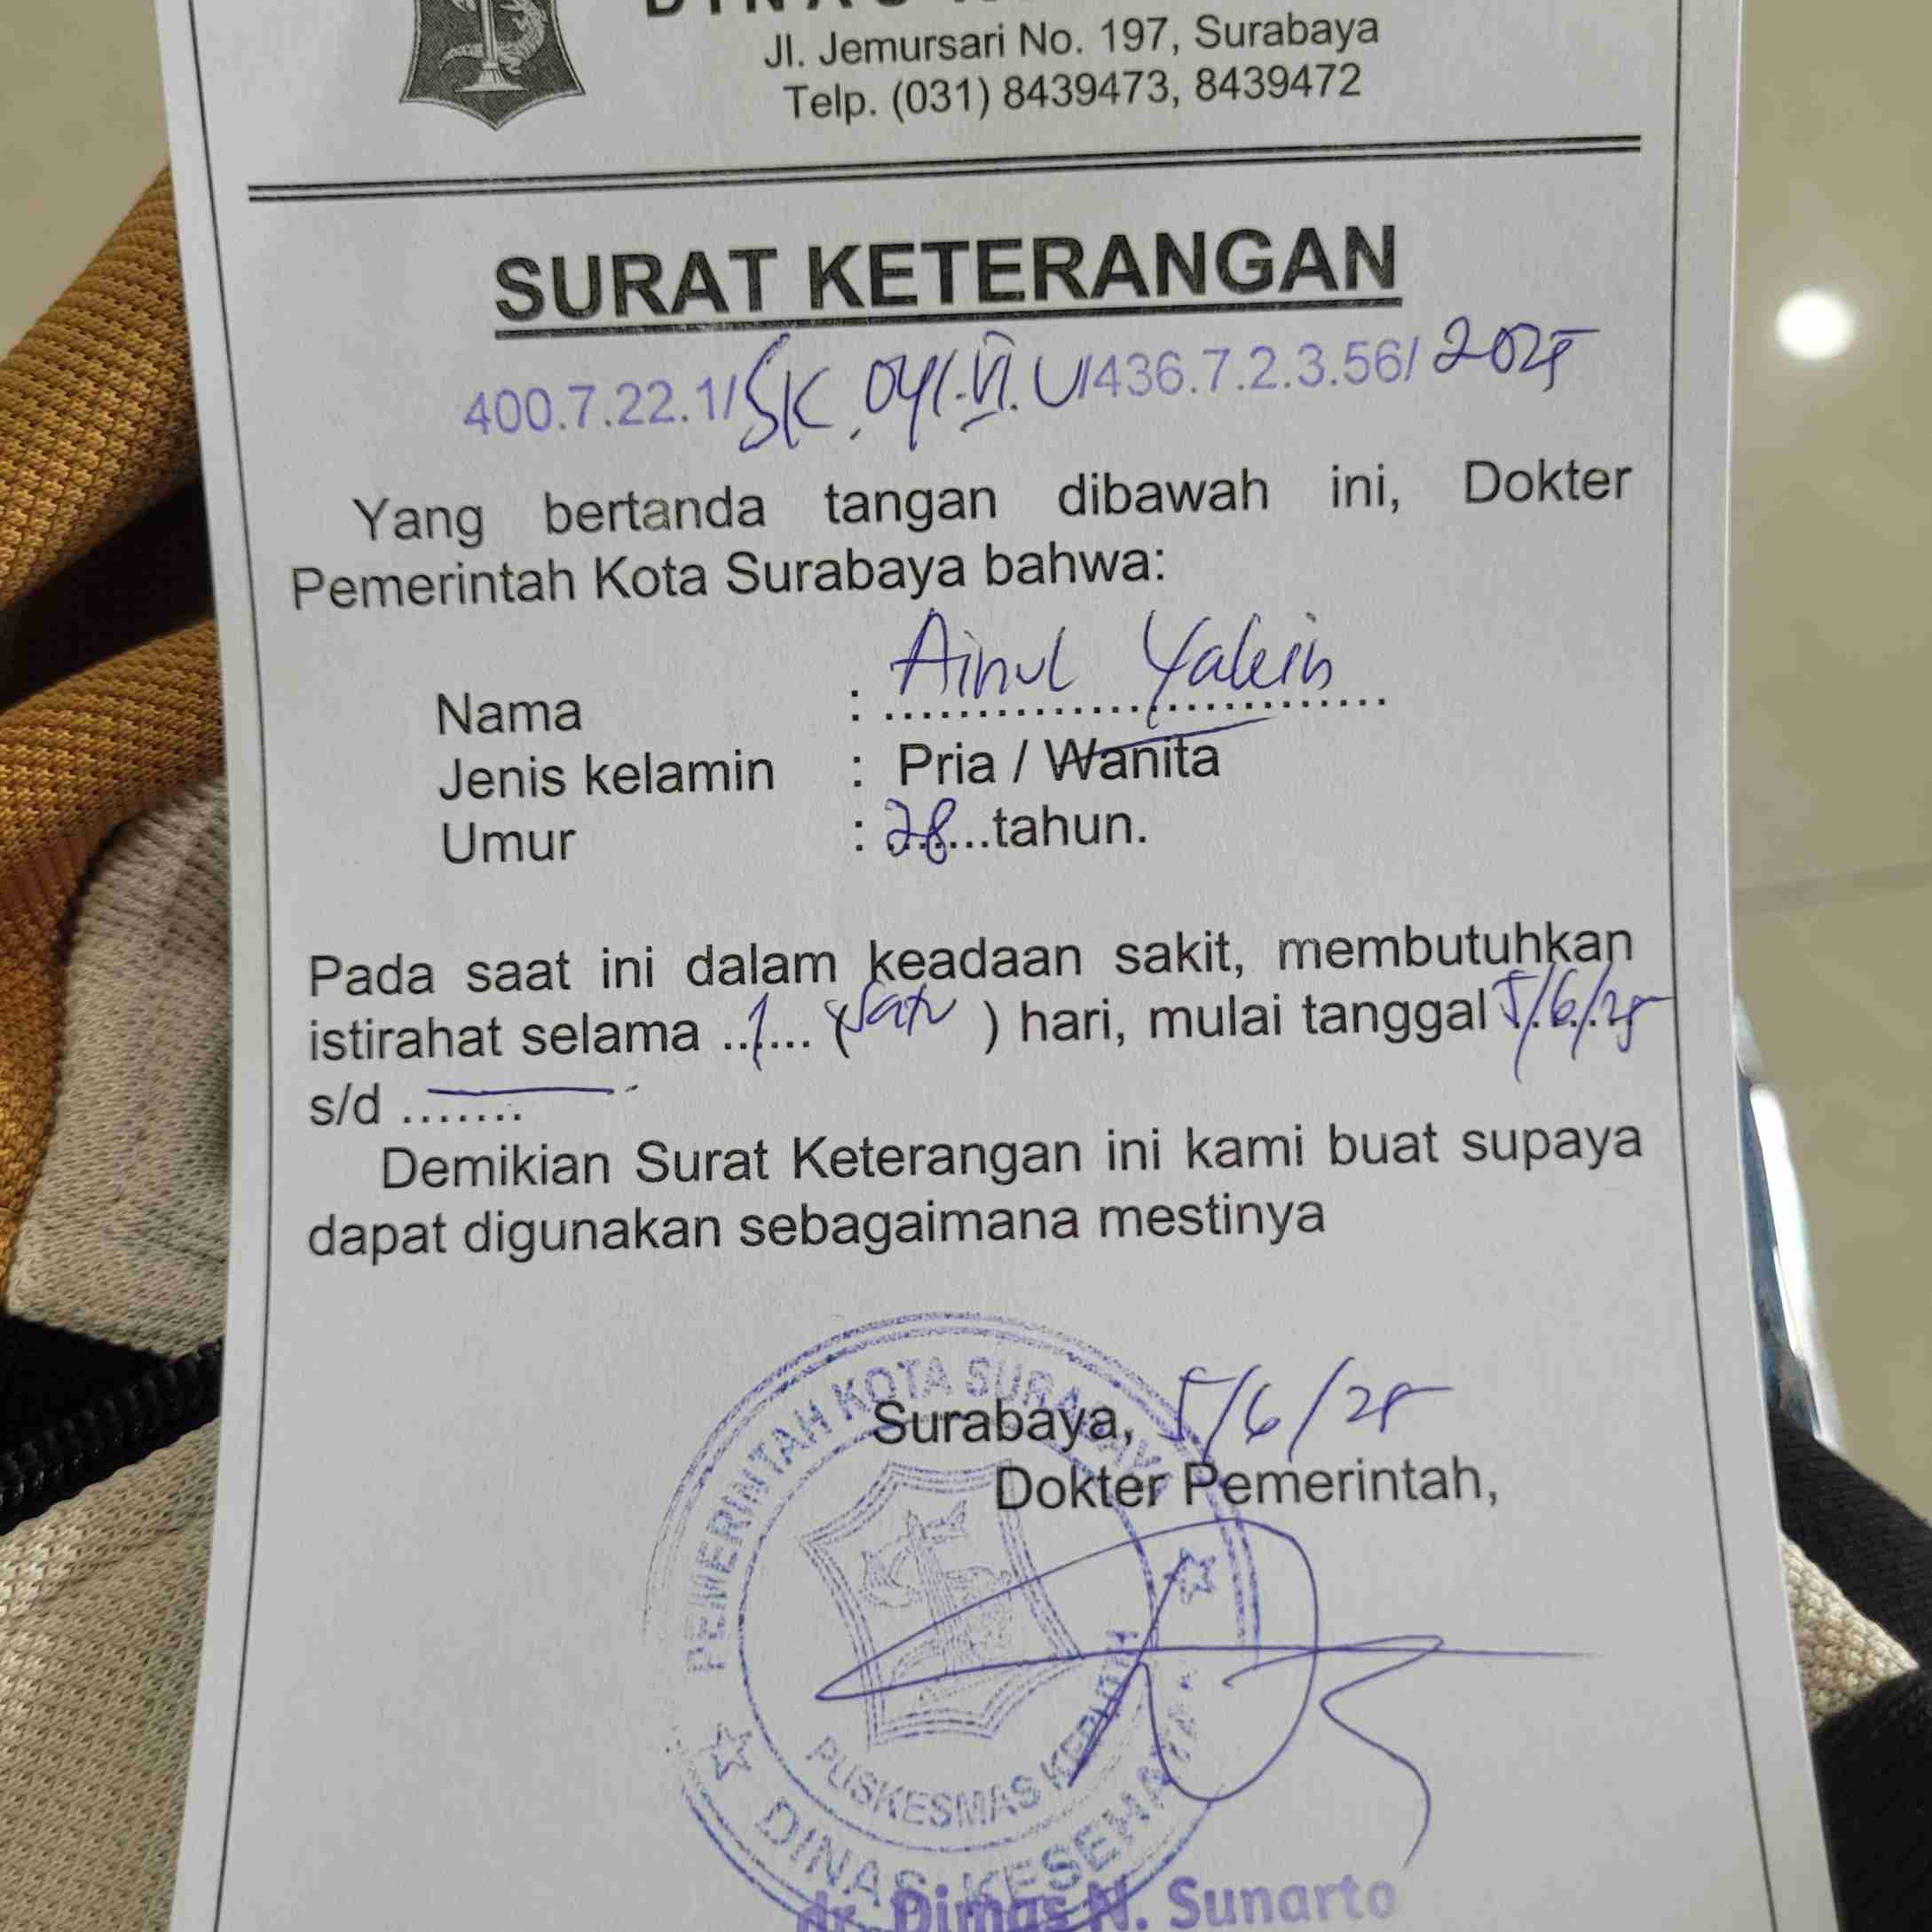 Jl. Jemursari No. 197, Surabaya
Telp. (031) 8439473, 8439472
SURAT KETERANGAN
400.7.22.1/SK.041.VI.U/436.7.2.3.56/2025
Yang bertanda tangan dibawah ini, Dokter
Pemerintah Kota Surabaya bahwa:
Nama : Ainul Yakin
Jenis kelamin : Pria / Wanita
Umur : 28...tahun.
Pada saat ini dalam keadaan sakit, membutuhkan
istirahat selama ..1... (satu ) hari, mulai tanggal 5/6/25
s/d .......
Demikian Surat Keterangan ini kami buat supaya
dapat digunakan sebagaimana mestinya
Surabaya, 5/6/25
Dokter Pemerintah,
PEMERINTAH KOTA SURABAYA
PUSKESMAS KEPUTIH
DINAS KESEHATAN
dr. Dimas N. Sunarto